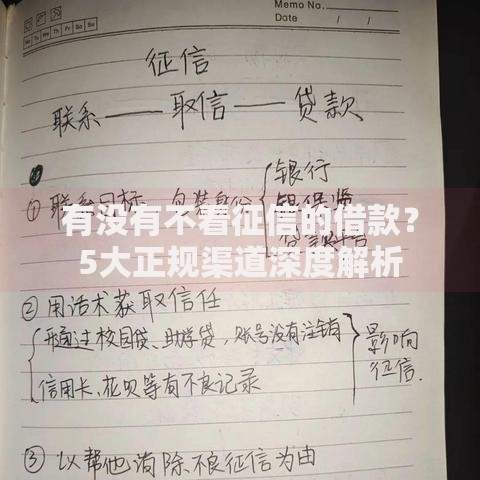 Memo No.
Mo Tu We Th Fr Sa Su
Date / /
征信
联系——取信——贷款
①联系目标,包装身份
银行
银保监
有没有不看征信的借款?
5大正规渠道深度解析
②用话术获取信任
通过校园贷、助学贷,账号没有注销
信用卡、花呗等有不良记录
影响
征信.
③以帮他消除不良征信为由